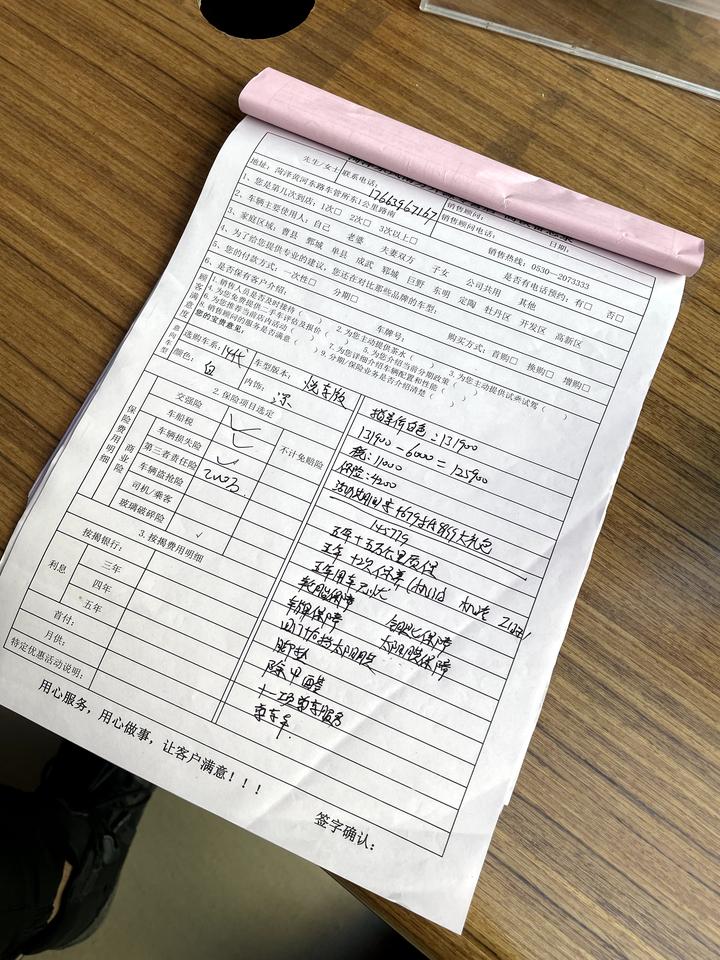 先生/女士 联系电话: 17663967167 销售顾问:
地址: 菏泽黄河东路车管所东1公里路南 销售顾问电话: 日期:
1、您是第几次到店: 1次□ 2次□ 3次以上□ 销售热线: 0530—2073333
2、车辆主要使用人: 自己 老婆 夫妻双方 子女 公司共用 其他 是否有电话预约: 有□ 否□
3、家庭区域: 曹县 鄄城 单县 成武 郓城 巨野 东明 定陶 牡丹区 开发区 高新区
4、为了给您提供专业的建议, 您还在对比那些品牌的车型:
5、您的付款方式: 一次性□ 分期□ 车牌号: 购买方式: 首购□ 换购□ 增购□
6、是否保有客户介绍:
顾客满意度
1. 销售人员是否及时接待( ) 2. 为您主动提供茶水( ) 3. 为您主动提供试乘试驾( )
4. 为您免费提供二手车评估及报价( ) 5. 为您介绍当前分期政策( )
6. 为您推荐当前店内活动( ) 7. 为您详细介绍车辆配置和性能( )
8. 销售顾问的服务是否满意( ) 9. 分期/保险业务是否介绍清楚( )
您的宝贵意见:
意向车型
选购车系: 14代 车型版本:
颜色: 白 内饰: 深
2. 保险项目选定
保险费用明细
交强险
车船税
商业险
车辆损失险 不计免赔险
第三者责任险 200万
车辆盗抢险
司机/乘客
玻璃破碎险 ✓
3. 按揭费用明细
按揭银行:
利息
三年
四年
五年
首付:
月供:
特定优惠活动说明:
指导价白色: 131900
131900 - 6000 = 125900
税: 11000
保险: 4200
145779
五年十五万公里质保
轮胎保障 钥匙保障
车牌保障 太阳膜保障
脚垫
除甲醛
用心服务, 用心做事, 让客户满意! ! !
签字确认: